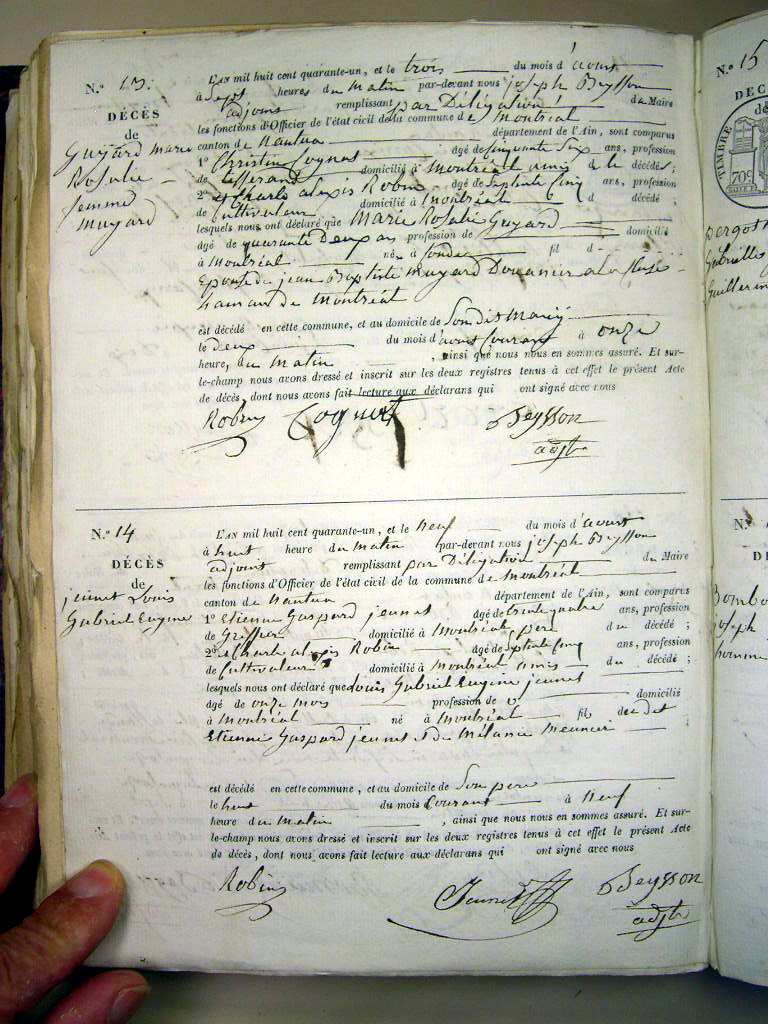 N.º 13.
DÉCÈS
de
Guyard Marie
Rosalie
femme
muyard
L'AN mil huit cent quarante-un, et le trois du mois d'aoust
à Sept heures du Matin par-devant nous joseph Beysson
adjoint remplissant par Déligation du Maire
les fonctions d'Officier de l'état civil de la commune de Montréal
canton de Nantua département de l'Ain, sont comparus
1º Christin Cognat âgé de Cinquante Six ans, profession
de tisserand domicilié à Montréal amis d la décédés ;
2º et Charle alexis Robin âgé de Septente Cinq ans, profession
de Cultivateur domicilié à Montréal d décédé ;
lesquels nous ont déclaré que Marie Rosalie Guyard
âgé de quarante Deux ans profession de domicilié
à Montréal né à fil d
Epouse de jean Baptiste muyard Douanier
de Montréal
est décédé en cette commune, et au domicile de Son dit Mary
le deux du mois d'aoust Courant à onze
heure, du Matin , ainsi que nous nous en sommes assuré. Et sur-
le-champ nous avons dressé et inscrit sur les deux registres tenus à cet effet le présent Acte
de décès, dont nous avons fait lecture aux déclarans qui ont signé avec nous
Robin Cognat Beysson
adjt
N.º 14
DÉCÈS
de
jeunet Louis
Gabriel Eugène
L'AN mil huit cent quarante-un, et le neuf du mois d'aoust
à huit heure du Matin par-devant nous joseph Beysson
adjoint remplissant par Déligation du Maire
les fonctions d'Officier de l'état civil de la commune de Montréal
canton de Nantua département de l'Ain, sont comparus
1º Etienne Gaspard jeunet âgé de trente quatre ans, profession
de Greffier domicilié à Montréal pere du décédé ;
2º et Charle alexis Robin âgé de Septente Cinq ans, profession
de Cultivateur domicilié à Montréal amis du décédé ;
lesquels nous ont déclaré que Louis Gabriel Eugène jeunet
âgé de onze mois profession de domicilié
à Montréal né à Montréal fils des dit
Etienne Gaspard jeunet et de Mélanie Meunier
est décédé en cette commune, et au domicile de Son pere
le huit du mois Courant à neuf
heure du Matin , ainsi que nous nous en sommes assuré. Et sur-
le-champ nous avons dressé et inscrit sur les deux registres tenus à cet effet le présent Acte
de décès, dont nous avons fait lecture aux déclarans qui ont signé avec nous
Robin Jeunet Beysson
adjt
N.º 15
DÉC
de
TIMBRE
70c
Gabrielle
N.
DÉ
joseph
homme